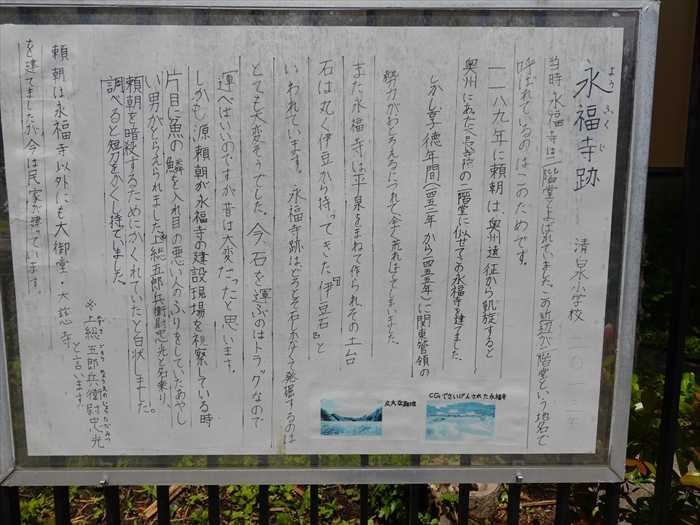 ようふくじ
永福寺跡
清泉小学校
当時永福寺は二階堂とよばれていました。この近辺が二階堂という地名で
呼ばれているのはこのためです。
一一八九年に頼朝は、奥州遠征から凱旋すると
奥州にあった中尊寺の二階堂に似せてこの永福寺を建てました。
しかし享徳年間(一四五二年から一四五五年)に関東管領の
勢力がおとろえるにつれて全く荒れはててしまいました。
また永福寺は平泉をまねて作られその土台
石は丸く伊豆から持ってきた「伊豆石」と
いわれています。永福寺跡はどうぞ石しかなく発掘するのは
とても大変そうでした。今、石を運ぶのはトラックなので
運べばいいのですが昔は大変だったと思います。
しかも源頼朝が永福寺の建設現場を視察している時
片目に魚の鱗を入れ目の悪い人のふりをしていたあやし
い男がとらえられました。上総五郎兵衛尉忠光と名乗り
頼朝を暗殺するためにかくれていたと白状しました。
調べると短刀をかくし持ていました。
※上総五郎兵衛尉忠光
と言います。
頼朝は永福寺以外にも大御堂・大慈寺
を建てましたが今は民家が建っています。
広大な跡地
CGでさいげんされた永福寺